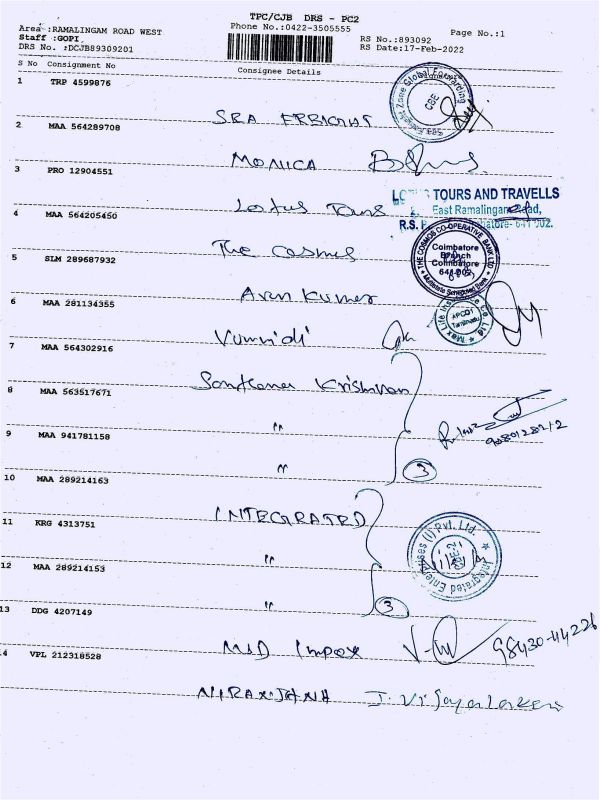 TPC/CJB DRS - PC2
Area :RAMALINGAM ROAD WEST
Phone No.:0422-3505555
Page No.:1
Staff :GOPI
RS No.:893092
DRS No. :DCJB89309201
RS Date:17-Feb-2022
S No Consignment No Consignee Details
1 TRP 4599876
SRA FREIGHT
Global Forwarding
CBE
2 MAA 564289708
MONICA
3 PRO 12904551
Lotus Tours
TOURS AND TRAVELLS
East Ramalingam Road,
R.S.
641 002.
4 MAA 564205450
The Cosmos
THE COSMOS CO-OPERATIVE BANK LTD
Coimbatore
Branch
Coimbatore
641 002
Multistate Scheduled Bank
5 SLM 289687932
Arun Kumar
6 MAA 281134355
Max Life Insurance Co Ltd
Tamilnadu
7 MAA 564302916
Santhana Krishnan
8 MAA 563517671
"
9 MAA 941781158
"
3
10 MAA 289214163
INTEGRATED
Integrated Enterprises (I) Pvt. Ltd.
11 KRG 4313751
"
12 MAA 289214153
"
3
13 DDG 4207149
MLD Impex
98430-44226
14 VPL 212318528
NIRANJANA
J. Vijayalakshmi